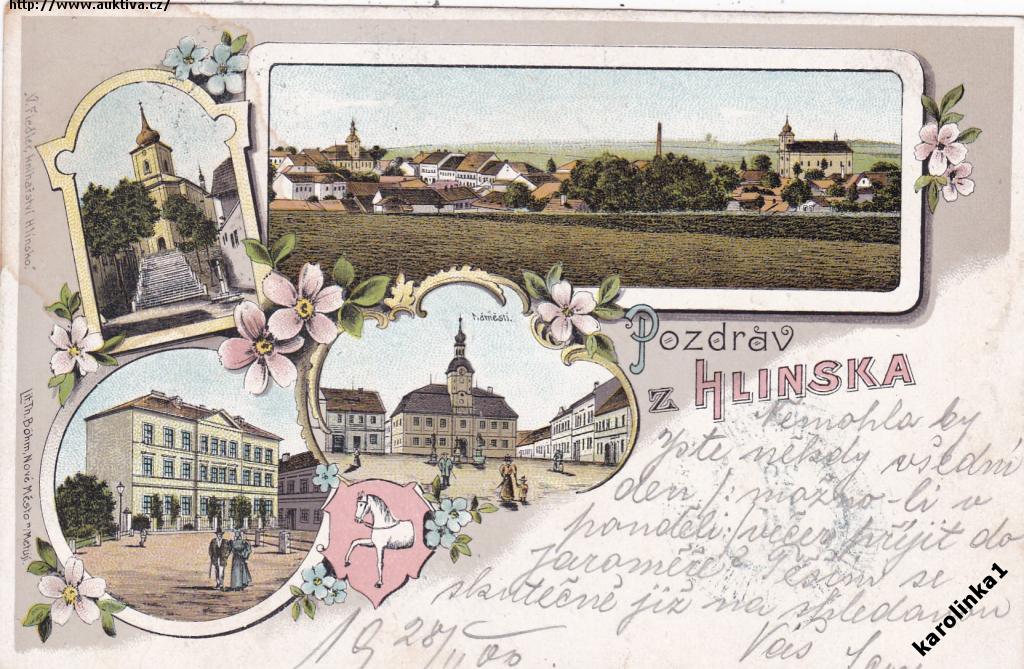 http://www.auktiva.cz/
Náměstí.
Pozdrav
z HLINSKA
Nemohla by
jste někdy všední
den /: možno-li v
pondělí večer přijít do
Jaroměře? Těším se
skutečně již na shledanou
Váš
19 28/11 00
Fiedler, knihařství Hlinsko.
Lit. Th. Böhm, Nové Město n/Metují.
karolinka1